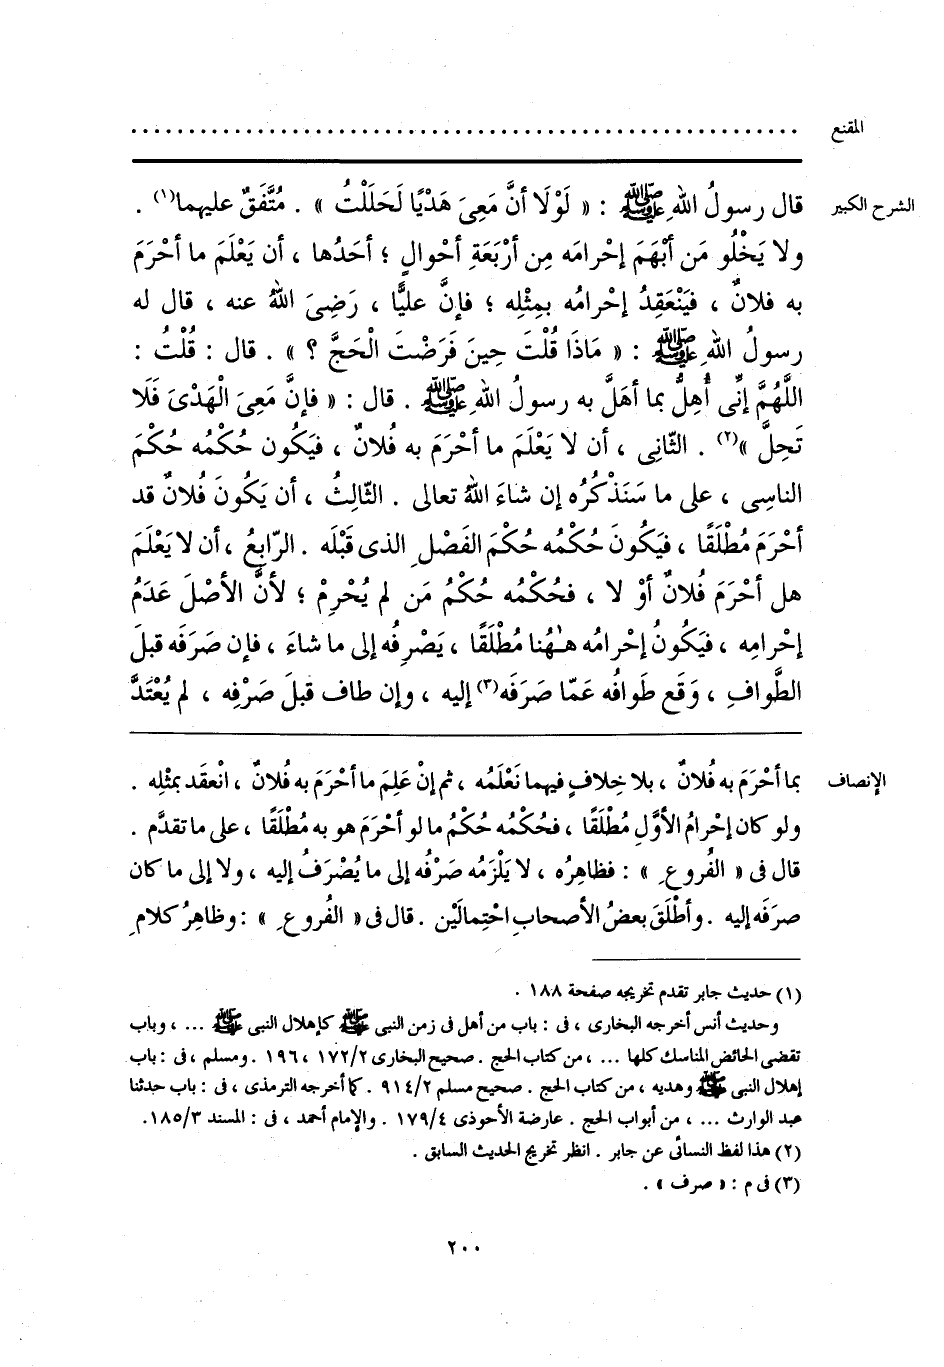 المقنع ................................................
الشرح الكبير قال رسولُ اللهِ ﷺ : « لَوْلَا أنَّ مَعِىَ هَدْيًا لَحَلَلْتُ » . مُتَّفَقٌ عليهما(١) .
ولا يَخْلُو مَن أبْهَمَ إحْرامَه مِن أرْبَعَةِ أحْوالٍ ؛ أحَدُها ، أن يَعْلَمَ ما أحْرَمَ
به فلانٌ ، فيَنْعَقِدُ إحْرامُه بمِثْلِه ؛ فإنَّ عليًّا ، رَضِىَ اللهُ عنه ، قال له
رسولُ اللهِ ﷺ : « مَاذَا قُلْتَ حِينَ فَرَضْتَ الْحَجَّ ؟ » . قال : قُلْتُ :
اللَّهُمَّ إنِّى أُهِلُّ بما أهَلَّ به رسولُ اللهِ ﷺ . قال : « فإنَّ مَعِىَ الْهَدْىَ فَلَا
تَحِلَّ »(٢) . الثّانِى ، أن لا يَعْلَمَ ما أحْرَمَ به فُلانٌ ، فيَكُون حُكْمُه حُكْمَ
الناسِى ، على ما سَنَذْكُرُه إن شاءَ اللهُ تعالى . الثّالِثُ ، أن يَكُونَ فُلانٌ قد
أحْرَمَ مُطْلَقًا ، فيَكُونَ حُكْمُه حُكْمَ الفَصْلِ الذى قَبْلَه . الرّابِعُ ، أن لا يَعْلَمَ
هل أحْرَمَ فُلانٌ أوْ لا ، فحُكْمُه حُكْمُ مَن لم يُحْرِمْ ؛ لأنَّ الأصْلَ عَدَمُ
إحْرامِه ، فيَكُونُ إحْرامُه هٰهُنا مُطْلَقًا ، يَصْرِفُه إلى ما شاءَ ، فإن صَرَفَه قبلَ
الطَّوافِ ، وَقَع طَوافُه عَمّا صَرَفَه(٣) إليه ، وإن طاف قبلَ صَرْفِه ، لم يُعْتَدَّ
الإنصاف بما أحْرَمَ به فُلانٌ ، بلا خِلافٍ فيما نَعْلَمُه ، ثم إنْ عَلِمَ ما أحْرَمَ به فُلانٌ ، انْعقَد بمثْلِه .
ولو كان إحْرامُ الأوَّلِ مُطْلَقًا ، فحُكْمُه حُكْمُ ما لو أحْرَمَ هو به مُطْلَقًا ، على ما تقدَّم .
قال فى « الفُروعِ » : فظاهِرُه ، لا يَلْزَمُه صَرْفُه إلى ما يُصْرَفُ إليه ، ولا إلى ما كان
صرَفَه إليه . وأطْلَقَ بعضُ الأصحابِ احْتِمالَيْن . قال فى « الفُروعِ » : وظاهِرُ كلامِ
(١) حديث جابر تقدم تخريجه صفحة ١٨٨ .
وحديث أنس أخرجه البخارى ، فى : باب من أهل فى زمن النبى ﷺ كإهلال النبى ﷺ ... ، وباب
تقضى الحائض المناسك كلها ... ، من كتاب الحج . صحيح البخارى ١٧٢/٢ ، ١٩٦ . ومسلم ، فى : باب
إهلال النبى ﷺ وهديه ، من كتاب الحج . صحيح مسلم ٩١٤/٢ . كما أخرجه الترمذى ، فى : باب حدثنا
عبد الوارث ... ، من أبواب الحج . عارضة الأحوذى ١٧٩/٤ . والإمام أحمد ، فى : المسند ١٨٥/٣.
(٢) هذا لفظ النسائى عن جابر . انظر تخريج الحديث السابق .
(٣) فى م : « صرف » .
٢٠٠